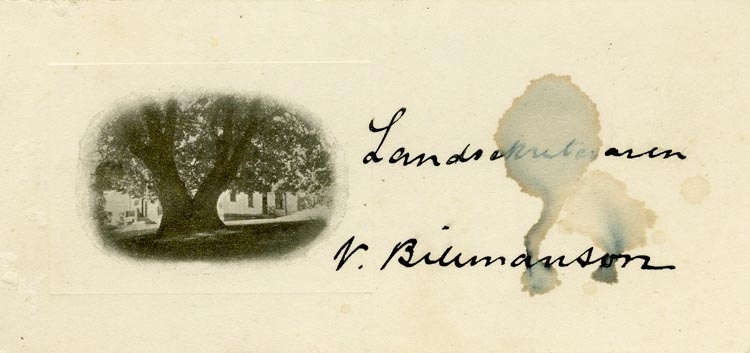 Landsekreteraren
V. Billmanson